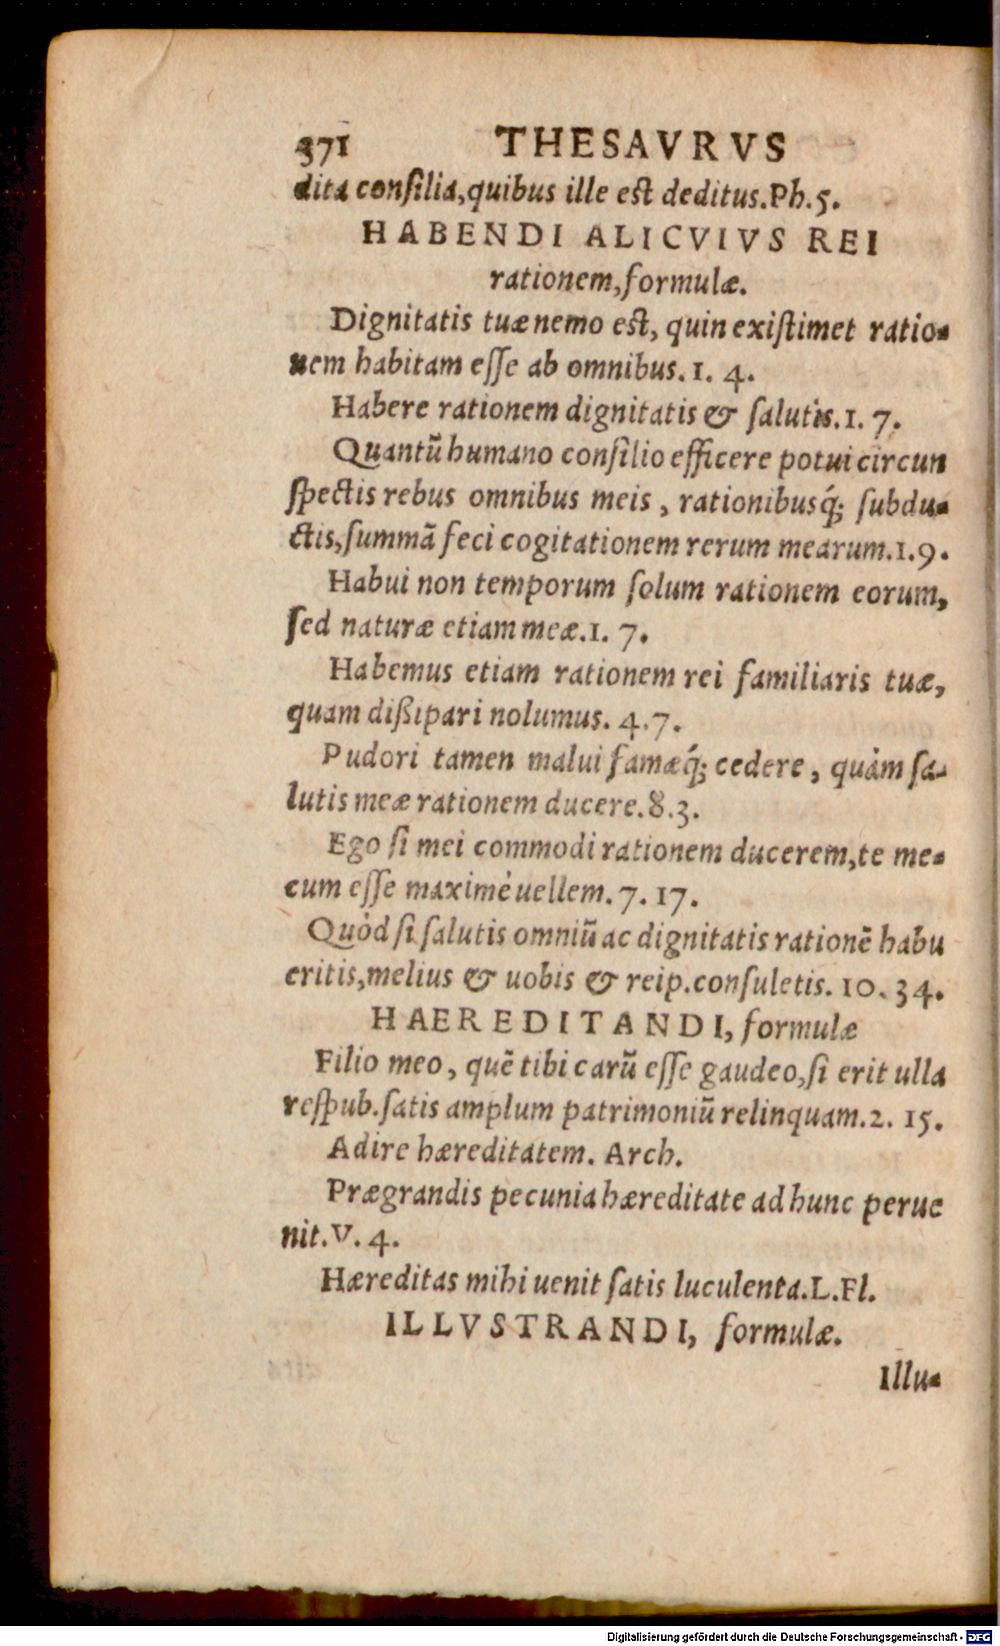 371 THESAVRVS
dita consilia,quibus ille est deditus.Ph.5.
HABENDI ALICVIVS REI
rationem,formulæ.
Dignitatis tuæ nemo est, quin existimet ratio-
nem habitam esse ab omnibus.1. 4.
Habere rationem dignitatis & salutis.1. 7.
Quantũ humano consilio efficere potui circun
spectis rebus omnibus meis , rationibusq́; subdu-
ctis,summã feci cogitationem rerum mearum.1.9.
Habui non temporum solum rationem eorum,
sed naturæ etiam meæ.1. 7.
Habemus etiam rationem rei familiaris tuæ,
quam dißipari nolumus. 4.7.
Pudori tamen malui famæq́; cedere , quàm sa-
lutis meæ rationem ducere.8.3.
Ego si mei commodi rationem ducerem,te me-
cum esse maximè uellem. 7. 17.
Quòd si salutis omniũ ac dignitatis rationẽ habu
eritis,melius & uobis & reip.consuletis. 10. 34.
HAEREDITANDI, formulæ
Filio meo , quẽ tibi carũ esse gaudeo,si erit ulla
respub.satis amplum patrimoniũ relinquam.2. 15.
Adire hæreditatem. Arch.
Prægrandis pecunia hæreditate ad hunc perue
nit.V. 4.
Hæreditas mihi uenit satis luculenta.L.Fl.
ILLVSTRANDI, formulæ.
Illu-
Digitalisierung gefördert durch die Deutsche Forschungsgemeinschaft - DFG